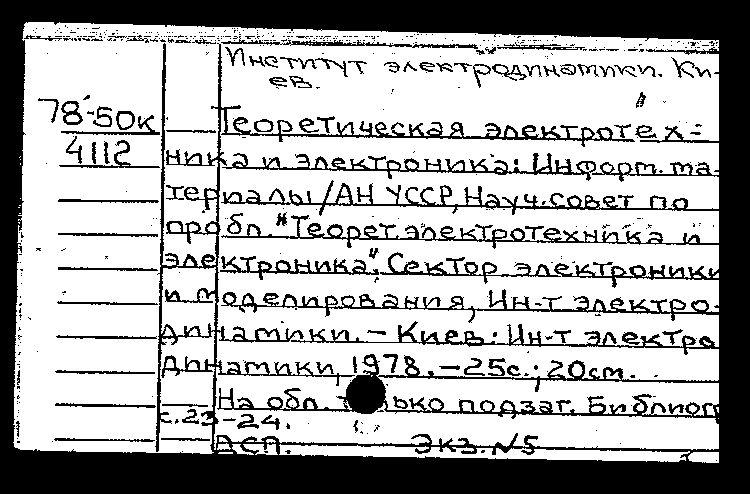 Институт электродинамики. Ки-
ев.
78-50к
4112
Теоретическая электротех-
ника и электроника: Информ. ма-
териалы/АН УССР, Науч. совет по
пробл. "Теорет. электротехника и
электроника", Сектор электроники
и моделирования, Ин-т электро-
динамики. - Киев: Ин-т электро
динамики, 1978. - 25с.; 20см.
На обл. только подзаг. Библиогр
с. 23-24.
ДСП. Экз. №5